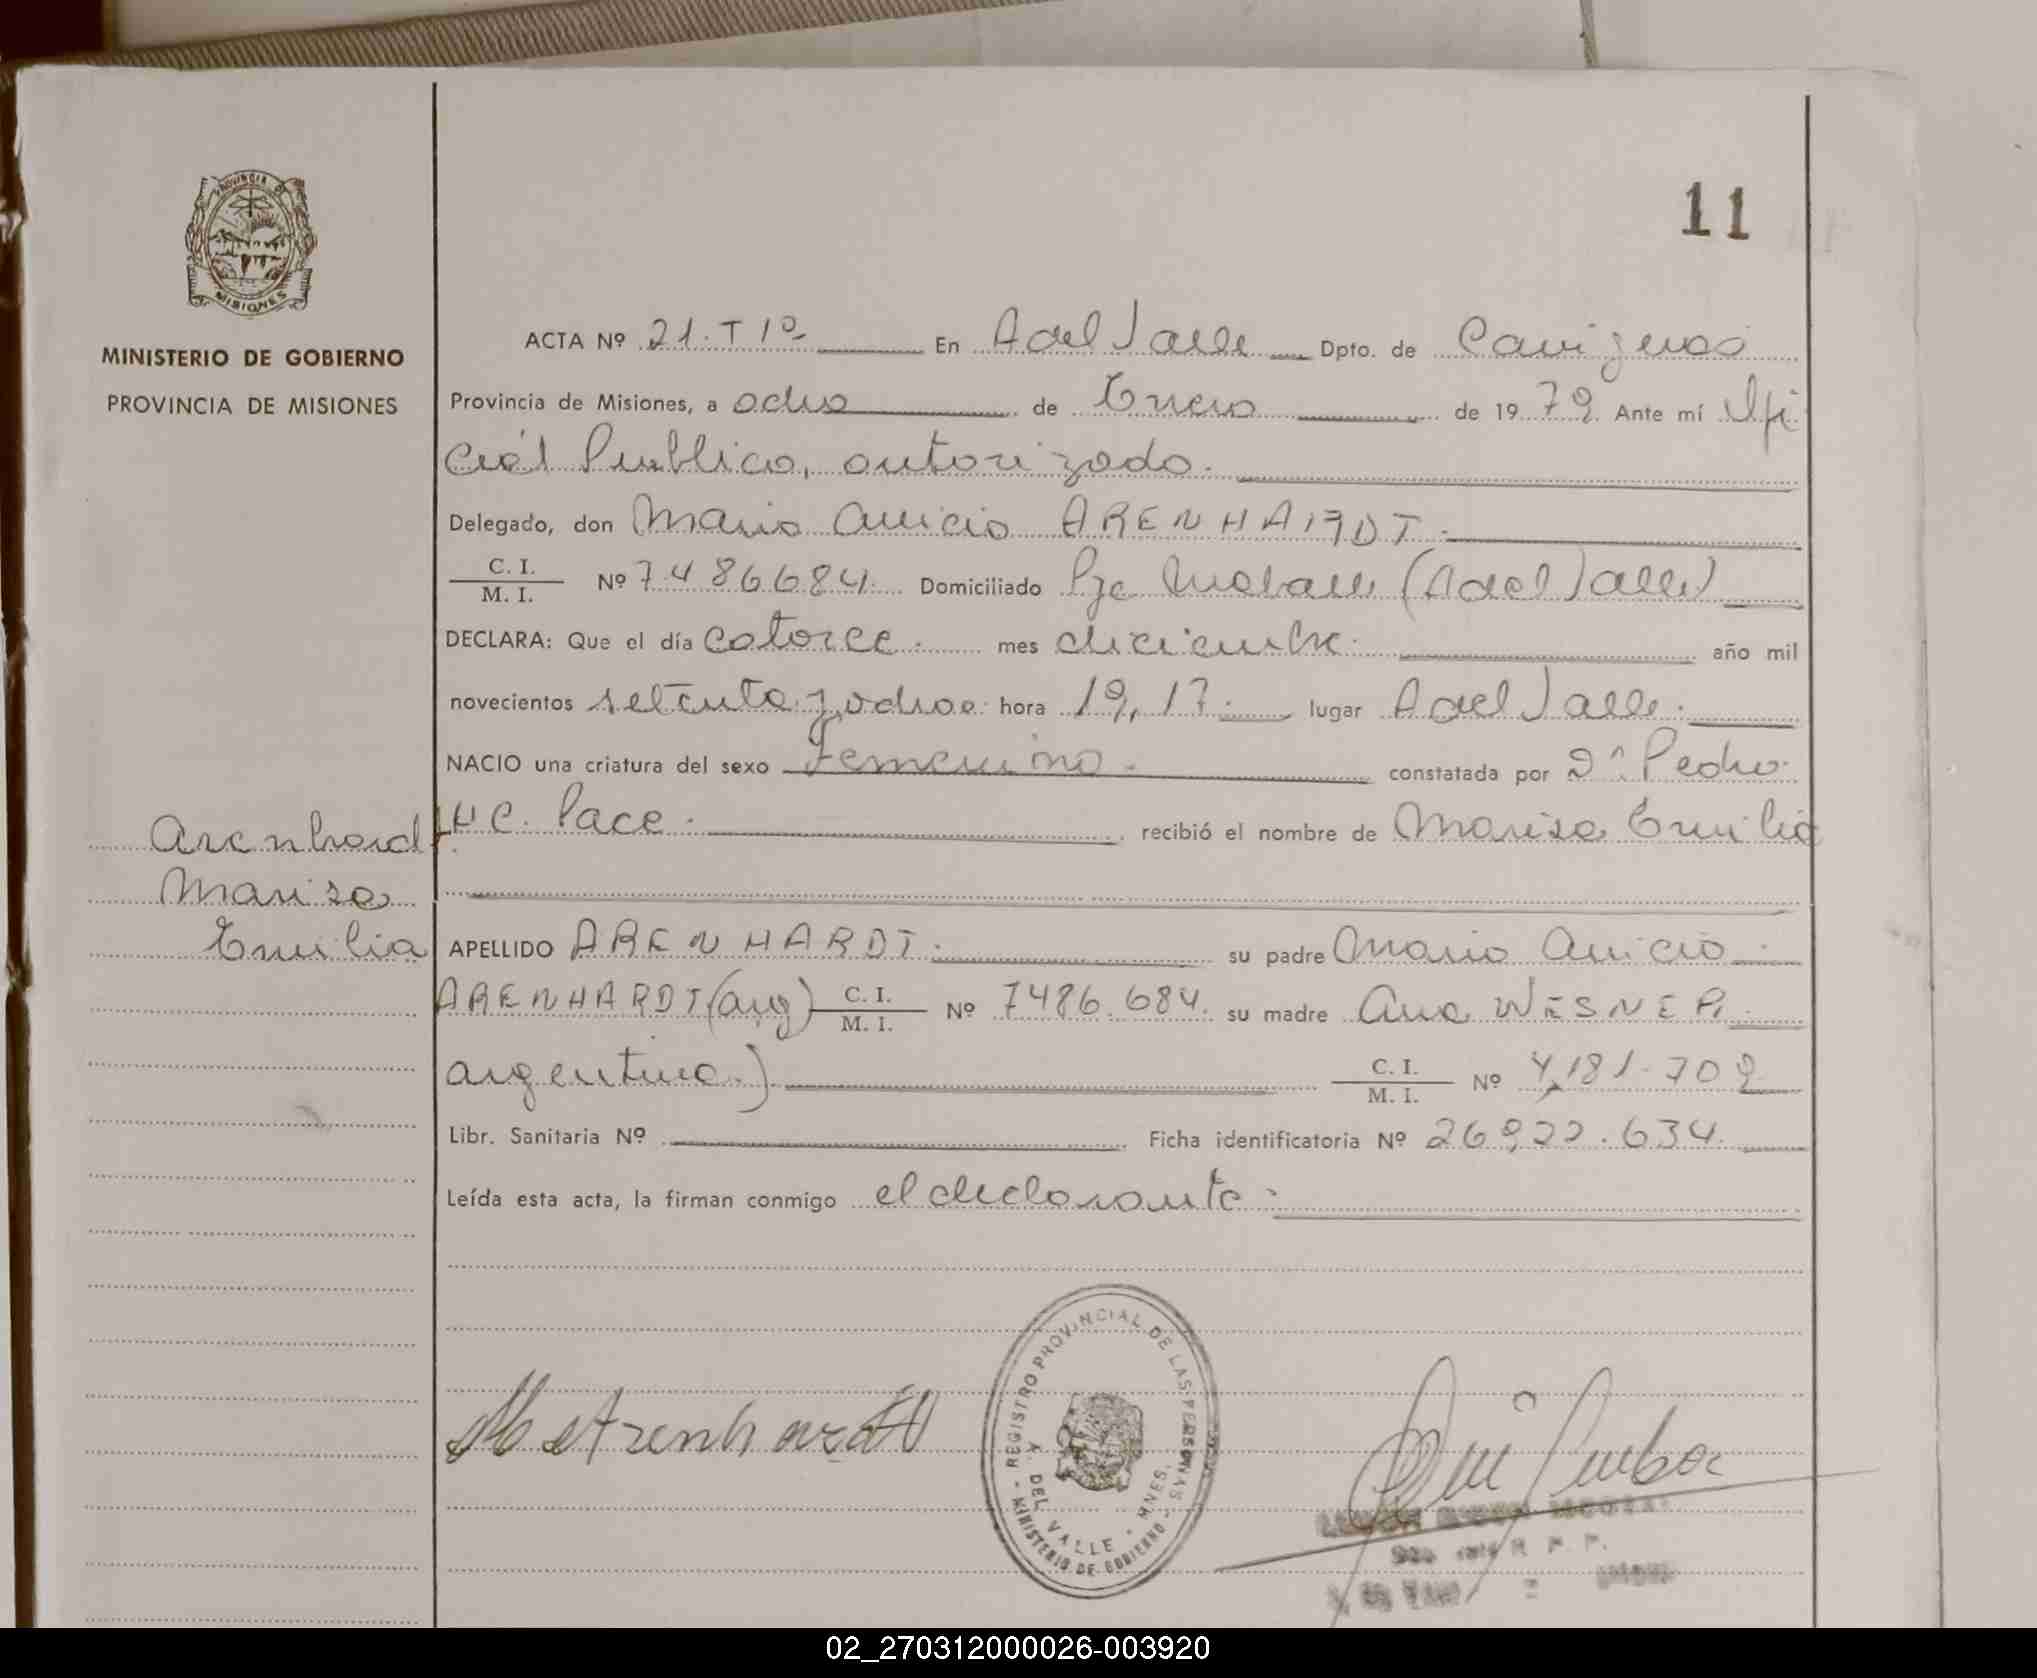 11
MINISTERIO DE GOBIERNO
PROVINCIA DE MISIONES
PROVINCIA DE
MISIONES
ACTA Nº 21. T 1º En A del Valle Dpto. de Cainguas
Provincia de Misiones, a ocho de Enero de 1979 Ante mí Ofi
cial Publico, autorizado.
Delegado, don Mario Anicio ARENHARDT.
C. I.
M. I. Nº 7.486.684. Domiciliado Pje (A del Valle)
DECLARA: Que el día catorce. mes diciembre. año mil
novecientos setenta y ocho hora 19,17. lugar A del Valle.
NACIO una criatura del sexo Femenino. constatada por Dº Pedro
H C. Pace. recibió el nombre de Marisa Emilia
Arenhardt
Marisa
Emilia
APELLIDO ARENHARDT. su padre Mario Anicio
ARENHARDT (arg) C. I.
M. I. Nº 7486.684. su madre Ana WESNER
argentina.) C. I.
M. I. Nº 4,181.709
Libr. Sanitaria Nº Ficha identificatoria Nº 26922.634.
Leída esta acta, la firman conmigo el declarante.
M A Arenhardt
REGISTRO PROVINCIAL DE LAS PERSONAS
A DEL VALLE - MNES.
MINISTERIO DE GOBIERNO
02_270312000026-003920